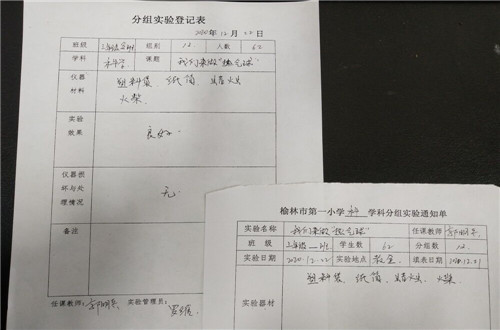 分组实验登记表
2020年12月22日
班级 组别 12 人数 62
学科 科学 课题 我们来做"热气球"
仪器材料 塑料袋、纸筒、蜡烛、火柴
实验效果 良好
仪器损坏与处理情况 无
备注
任课教师: 实验管理员:
榆林市第一小学 科 学科分组实验通知单
实验名称 我们来做"热气球" 任课教师
班 级 学生数 62 分组数 12
实验日期 2020.12.22 实验地点 教室 填表日期 2020.12.21
实验器材 塑料袋、纸筒、蜡烛、火柴